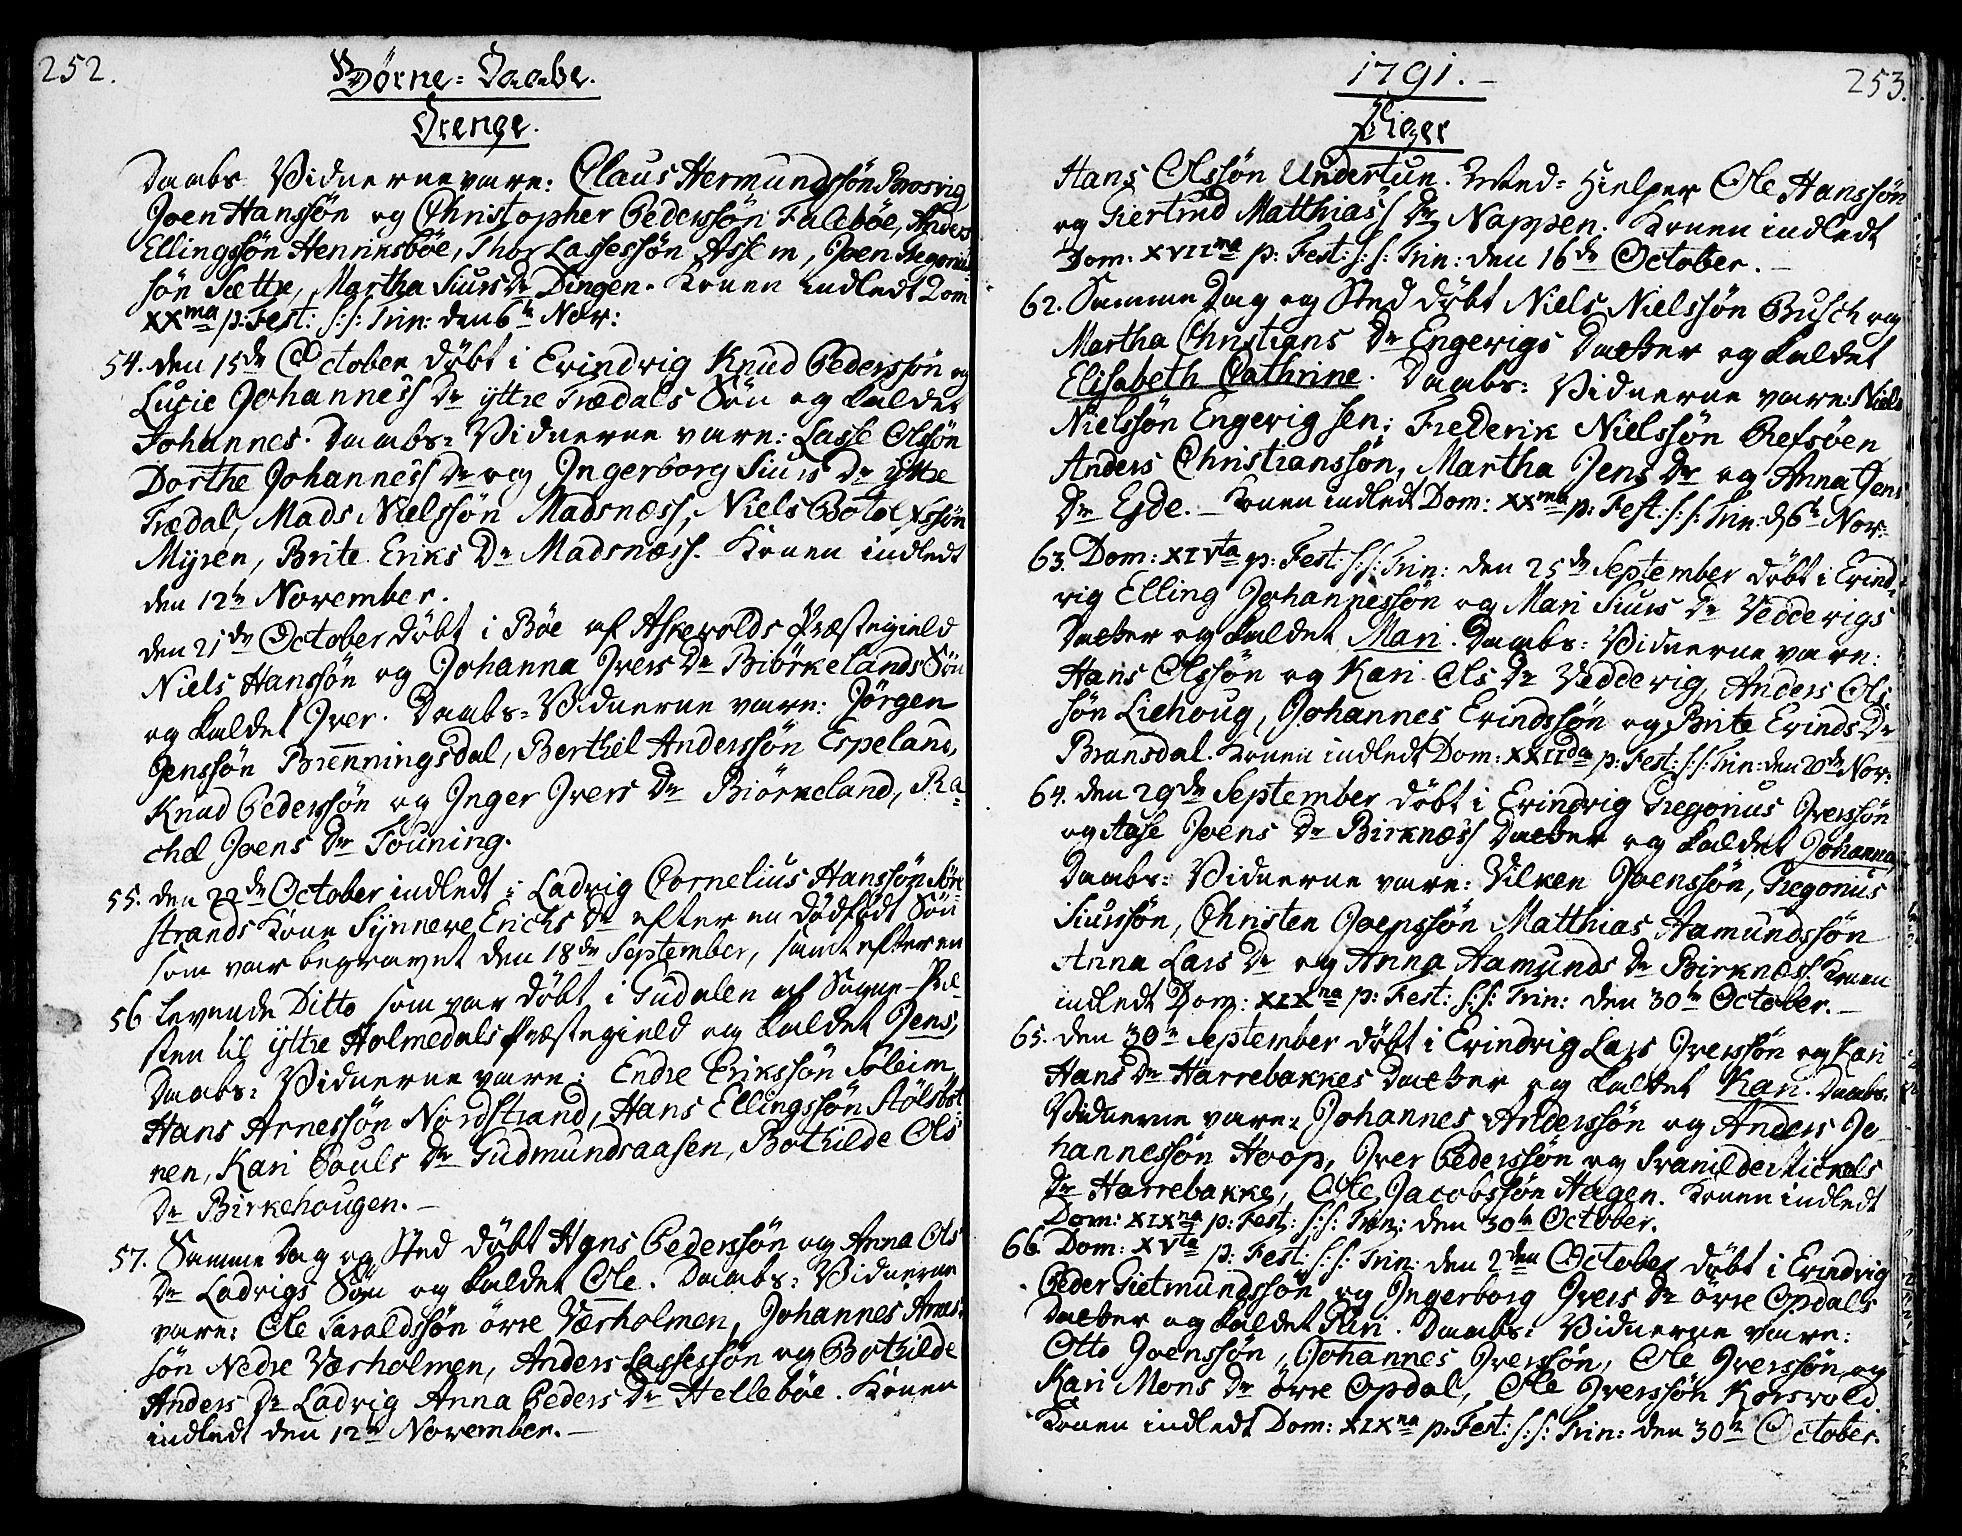 252.
Børne-Daabe.
Drenge.
Daabs Vidnerne vare: Claus Hermundssøn
Joen Hanssøn og Christopher Pederssøn Faleböe, Anders
Ellingssøn Henriksböe, Thor Lassessøn Assem, Joen Gregorius
søn Sættre, Martha Siurs Dr Dingen. Konen indledt Dom
XXma p: Fest: s: s: Trin: den 6te Nov:
54. den 15de October döbt i Evindvig Knud Pederssøn og
Lucie Johanness Dr yttre Trædals Søn og kaldet
Johannes. Daabs-Vidnerne vare: Lasse Olssøn
Dorthe Johanness Dr og Ingerborg Siurs Dr yttre
Trædal, Mads Nielssøn Madsnæss, Niels Botolfssøn
Myren, Brite Eriks Dr Madsnæss. Konen indledt
den 12te November.
den 21de October döbt i Böe af Askevolds Præstegield
Niels Hanssøn og Johanna Ivers Dr Biörkelands Søn
og kaldet Iver. Daabs-Vidnerne vare: Jörgen
Jenssøn Brenningsdal, Berthel Anderssøn Espeland,
Knud Pederssøn og Inger Ivers Dr Biörkeland, Ra-
chel Joens Dr Touning.
55. den 22de October indledt i Ladvig Cornelius Hanssøn Nör
strands Kone Synneve Erichs Dr efter en dödfödt Søn
som var begravet den 18de September, samt efter en
56 levende Ditto som var döbt i Gudalen af Sogne-Præ-
sten til yttre Holmedals Præstegield og kaldet Jens,
Daabs-Vidnerne vare: Endre Erikssøn Soleim,
Hans Arnessøn Nordstrand, Hans Ellingssøn
nen, Kari Pouls Dr Gudmundsaasen, Bothilde Ols
Dr Birkehougen.
57. Samme Dag og Sted döbt Hans Pederssøn og Anna Ols
Dr Ladvigs Søn og kaldet Ole. Daabs-Vidnerne
vare: Ole Taraldssøn övre Værholmen, Johannes Arnes-
søn Nedre Værholmen, Anders Lassessøn og Bothilde
Anders Dr Ladvig Anna Peders Dr Helleböe. Konen
indledt den 12te November.
1791.
253.
Piger
Hans Olssøn Undertun. Med-Hielper Ole Hanssøn
og Giertrud Matthiass Dr Nappen. Konen indledt
Dom: XVIIma p: Fest: s: s: Trin: den 16de October.
62. Samme Dag og Sted döbt Niels Nielssøn Busch og
Martha Christians Dr Engevigs Datter og kaldet
Elisabeth Cathrine. Daabs-Vidnerne vare: Niels
Nielssøn Engevig sen: Frederik Nielssøn Refsöen
Anders Christianssøn, Martha Jens Dr og Anna Jens
Dr Eide. Konen indledt Dom: XXma p: Fest: s: s: Trin: d 6te Nov:
63. Dom: XIVta p: Fest: s: s: Trin: den 25de September döbt i Evind-
vig Elling Johannessøn og Mari Siurs Dr Veddevigs
Datter og kaldet Mari. Daabs-Vidnerne vare:
Hans Olssøn og Kari Ols Dr Veddevig, Anders Ols
søn Liehoug, Johannes Evindssøn og Brite Evinds Dr
Bransdal. Konen indledt Dom: XXIIda p: Fest: s: s: Trin: den 20de Nov:
64. den 29de September döbt i Evindvig Gregorius Iverssøn
og Aase Joens Dr Birknæss Datter og kaldet Johanna,
Daabs-Vidnerne vare: Vilken Joenssøn, Gregorius
Siurssøn, Christen Joenssøn Matthias Aamundssøn
Anna Lars Dr og Anna Aamunds Dr Birknæss. Konen
indledt Dom: XIXna p: Fest: s: s: Trin: den 30te October.
65. den 30te September döbt i Evindvig Lars Iverssøn og Kari
Hans Dr Harrebakkes Datter og kaldet Kari. Daabs-
Vidnerne vare: Johannes Anderssøn og Anders Jo-
hannessøn Hoop, Iver Pederssøn og Svanilde Mickels
Dr Harrebakke, Ole Jacobssøn Hagen. Konen indledt
Dom: XIXna p: Fest: s: s: Trin: den 30te October.
66. Dom: XVta p: Fest: s: s: Trin: den 2den October döbt i Evindvig
Peder Gietmundssøn og Ingerborg Ivers Dr övre Opdals
Datter og kaldet Kari. Daabs-Vidnerne vare:
Otto Joenssøn, Johannes Iverssøn, Ole Iverssøn, og
Kari Mons Dr övre Opdal, Ole Iverssøn Korsvold
Konen indledt Dom: XIXna p: Fest: s: s: Trin: den 30te October.